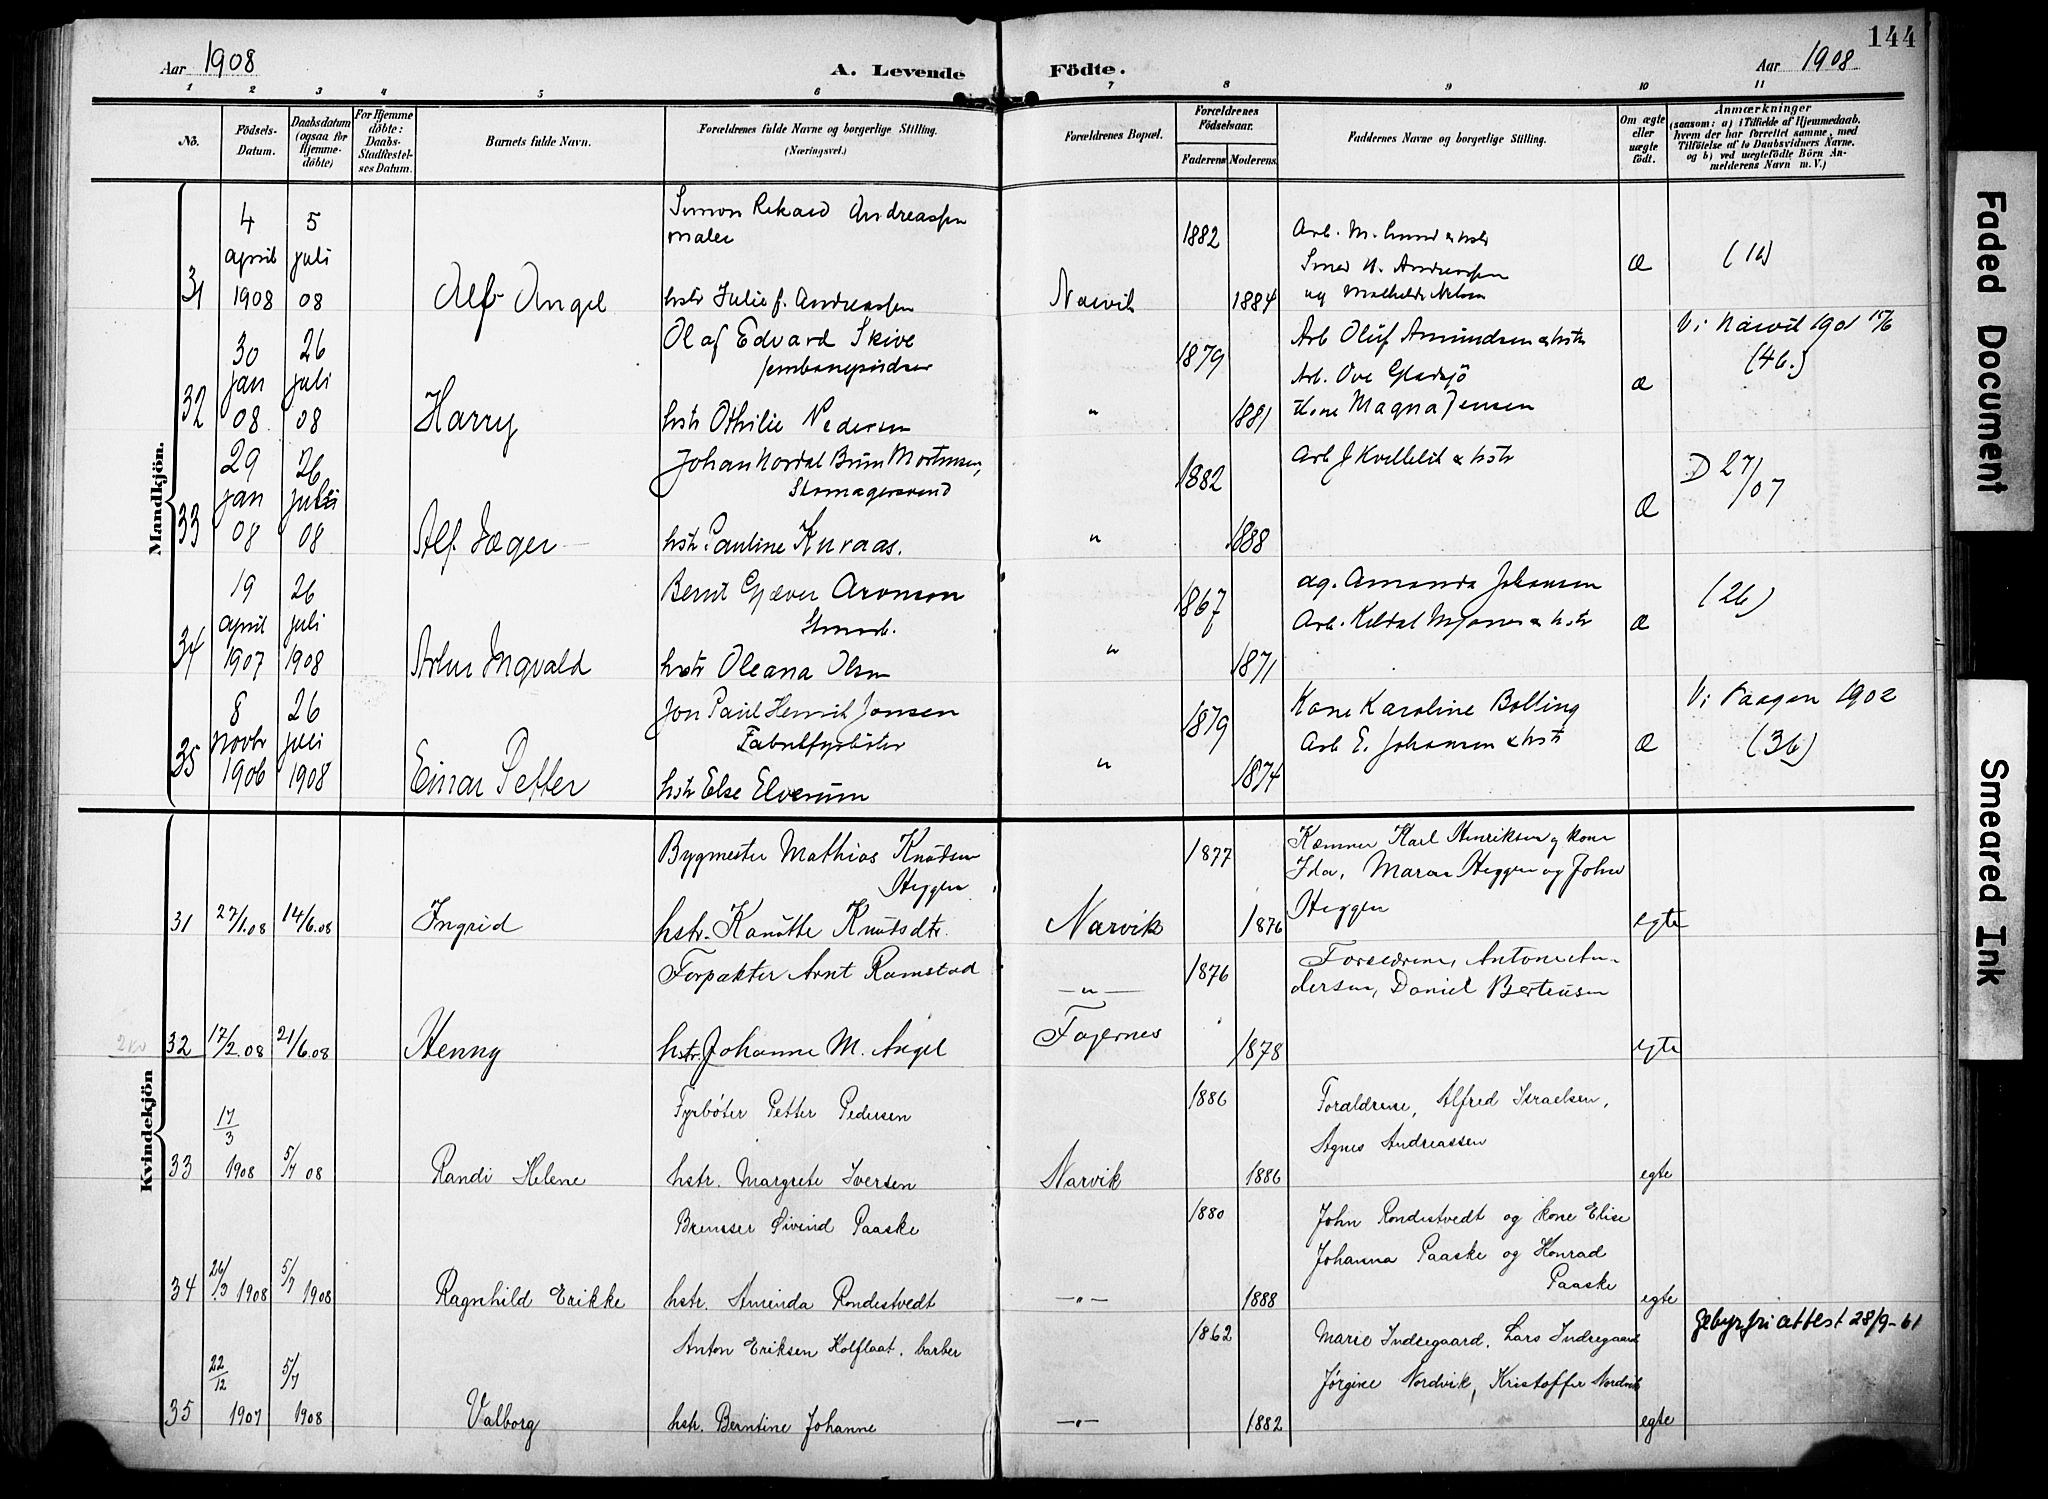 144
Aar 1908
A. Levende Födte.
Aar 1908
1 2 3 4 5 6 7 8 9 10 11
No.
Födsels-
Datum.
Daabsdatum
(ogsaa for
Hjemme-
döbte)
For Hjemme
döbte:
Daabs-
Stadfæstel-
ses Datum.
Barnets fulde Navn.
Forældrenes fulde Navne og borgerlige Stilling.
(Næringsvei.)
Forældrenes Bopæl.
Forældrenes
Födselsaar.
Faderens
Moderens.
Faddernes Navne og borgerlige Stilling.
Om ægte
eller
uægte
födt.
Anmærkninger
(saasom: a) i Tilfælde af Hjemmedaab,
hvem der har forrettet samme, med
Tilföielse af to Daabsvidners Navne.
og b) ved uægtefödte Börn An-
melderens Navn m. V.)
Mandkjön.
31
4
april
1908
5
juli
08
Alf Angel
Simon Rikard Andreassen
maler
hstr Julie f. Andreassen
Narvik
1882
1884
Arb. M. Lund & hstr
Smed N. Andreassen
og Mathilde Nilsen
Æ
32
30
jan
08
26
juli
08
Harry
Olaf Edvard Skive
hstr Othilie Pedersen
"
1879
1881
Arb Oluf Amundsen & hstr
Arb. Ove Gladsjö
Kone Magna Jensen
Æ
V i Narvik 1901 15/6
(46.)
33
29
jan
08
26
juli
08
Alf Jæger
Johan Nordal Brun Mortensen,
Skomagersvend
hstr. Pauline Kuraas.
"
1882
1888
Arb J Kvillelid & hstr
Æ
D 27/07
34
19
april
1907
26
juli
1908
Artur Ingvald
Bernt Gjæver Aronson
hstr Oleana Olsen
"
1867
1871
ag. Amanda Johansen
Arb. Kildal Mjones & hstr
Æ
(26)
35
8
novbr
1906
26
juli
1908
Einar Petter
Jon Paul Henrik Jonsen
Fabrikfyrböter
hstr Else Elverum
"
1879
1874
Kone Karoline Bolling
Arb E. Johansen & hstr
Æ
V i Vaagan 1902
(36)
Kvindekjön
31
27/1.08
14/6.08
Ingrid
Bygmester Mathias Knudsen
Heggen
hstr. Kanutte Knutsdtr.
Narvik
1877
1876
Kæmner Karl Henriksen og kone
Ida, Maren Heggen og John
Heggen
egte
32
17/2.08
21/6.08
Henny
Forpakter Arnt Ramstad
hstr. Johanne M. Angel
— " —
Fagernes
1876
1878
Forældrene, Antone An-
dersen, Daniel Berteusen
egte
33
17/3
1908
5/7 08
Randi Helene
Fyrbøter Petter Pedersen
hstr. Margrete Iversen
Narvik
1886
1886
Foraldrene, Alfred Israelsen,
Agnes Andreassen
egte
34
26/3 1908
5/7 1908
Ragnhild Erikke
Bremser Eivind Paaske
hstr. Aminda Rondestvedt
— " —
1880
1888
John Rondestvedt og kone Elise
Johanna Paaske og Konrad
Paaske
egte
35
22/12
1907
5/7
1908
Valborg
Anton Eriksen Kolflaat. barber
hstr. Berntine Johanne
— " —
1862
1882
Marie Indregaard, Lars Indregaard
Jørgine Nordvik, Kristoffer Nordvik
egte
Gebyrfri attest 28/9-61
Faded Document
Smeared Ink